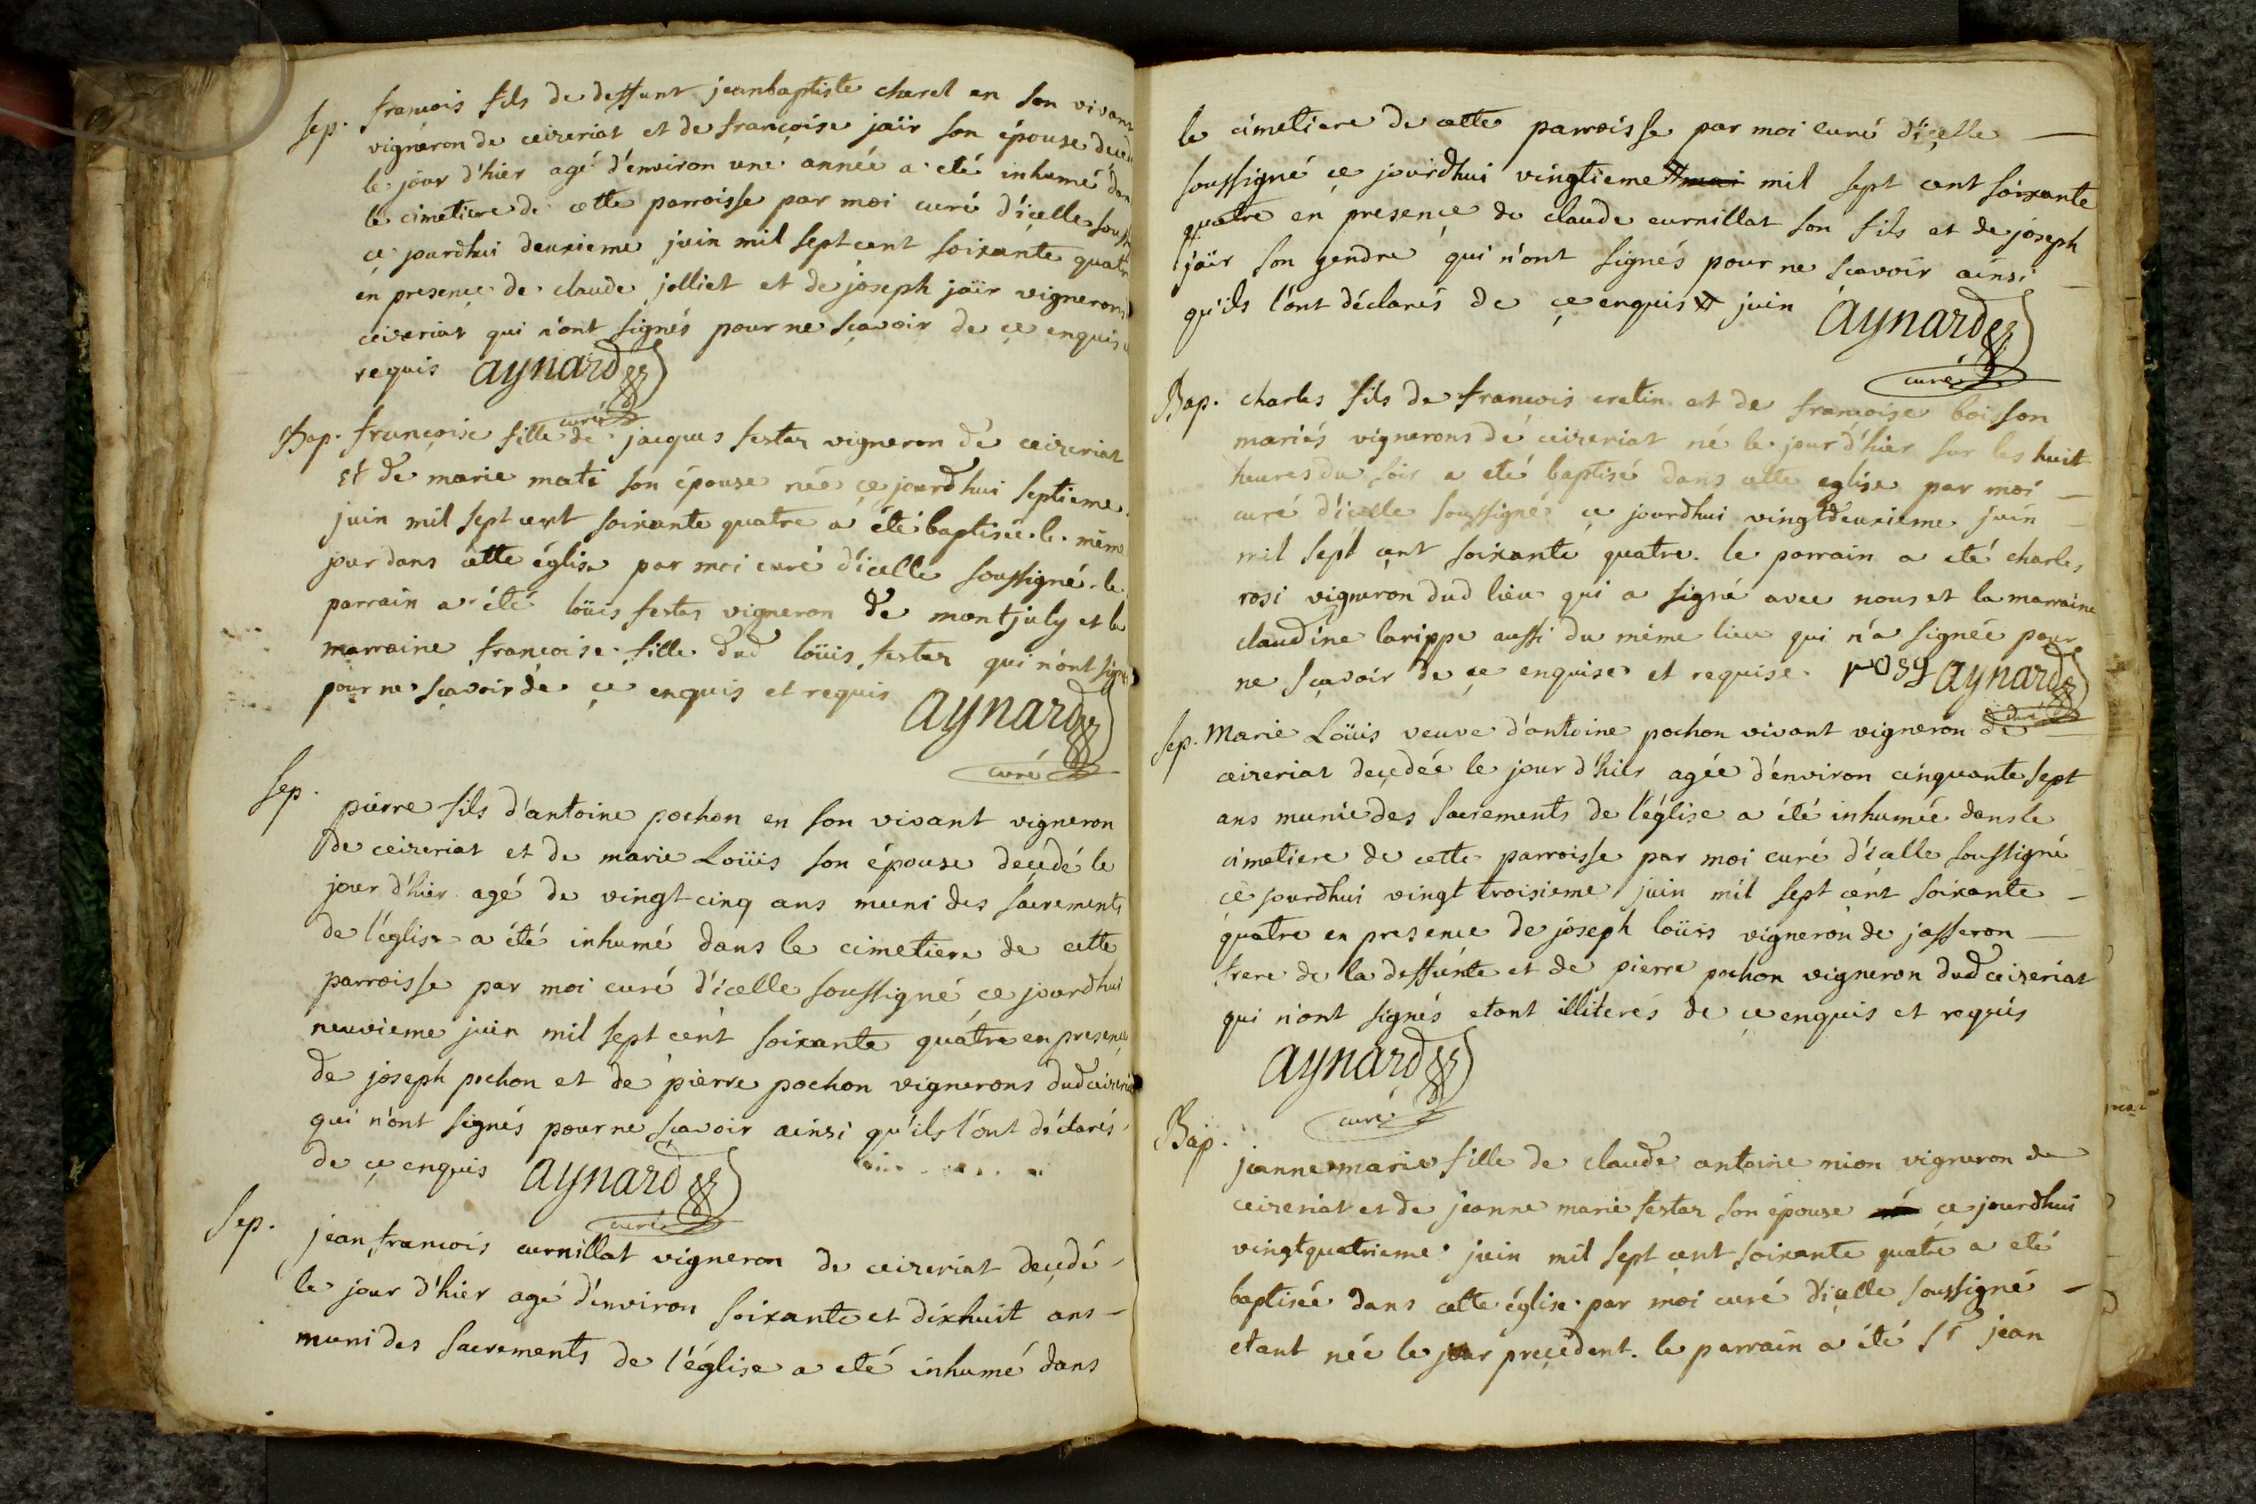 sep. francois fils de deffunt jeanbaptiste charel en son vivant
vigneron de ceizeriat et de françoise jaïr son épouse deced
le jour d'hier agé d'environ une année a eté inhumé dan
le cimetiere de cette parroisse par moi curé d'icelle souss
ce jourdhui deuxieme juin mil sept cent soixante quatr
en presence de claude jolliet et de joseph jaïr vignerons
ceizeriat qui n'ont signés pour ne sçavoir de ce enquis
requis aynard
curé
Bap. françoise fille de jacques festas vigneron de ceizeriat
et de marie mati son épouse née ce jourdhui septieme
juin mil sept cent soixante quatre a été baptisée le même
jour dans cette église par moi curé d'icelle soussigné. le
parrain a été loüis festas vigneron de montjuly et la
marraine françoise fille dud loüis festas qui n'ont sign
pour ne sçavoir de ce enquis et requis aynard
curé
sep. pierre fils d'antoine pochon en son vivant vigneron
de ceizeriat et de marie Loüis son épouse decédé le
jour d'hier agé de vingt-cinq ans muni des sacrements
de l'église a été inhumé dans le cimetiere de cette
parroisse par moi curé d'icelle soussigné ce jourdhui
neuvieme juin mil sept cent soixante quatre en presence
de joseph pochon et de pierre pochon vignerons dud ceizeria
qui n'ont signés pour ne sçavoir ainsi qu'ils l'ont déclarés
de ce enquis aynard
curé
sep. jean francois curnillat vigneron de ceizeriat decedé
le jour d'hier agé d'environ soixante et dixhuit ans
muni des sacrements de l'église a eté inhumé dans
le cimetiere de cette parroisse par moi curé d'icelle
soussigné ce jourdhui vingtieme # mai mil sept cent soixante
quatre en presence de claude curnillat son fils et de joseph
jaïr son gendre qui n'ont signés pour ne scavoir ainsi
qu'ils l'ont déclarés de ce enquis # juin aynard
curé
Bap. charles fils de francois cretin et de francoise boisson
mariés vignerons de ceizeriat né le jour d'hier sur les huit
heures du soir a eté baptisé dans cette eglise par moi
curé d'icelle soussigné ce jourdhui vingtdeuxieme juin
mil sept cent soixante quatre. le parrain a eté charles
rosi vigneron dud lieu qui a signé avec nous et la marraine
claudine larippe aussi du même lieu qui n'a signée pour
ne sçavoir de ce enquise et requise. rosy aynard
curé
sep. Marie Loüis veuve d'antoine pochon vivant vigneron de
ceizeriat decedée le jour d'hier agée d'environ cinquante sept
ans munie des sacrements de l'église a été inhumée dans le
cimetiere de cette parroisse par moi curé d'icelle soussigné
ce jourdhui vingt troisieme juin mil sept cent soixante
quatre en presence de joseph loüis vigneron de jasseron
frere de la deffunte et de pierre pochon vigneron dud ceizeriat
qui n'ont signés etant illiterés de ce enquis et requis
aynard
curé
Bap. jeanne marie fille de claude antoine nion vigneron de
ceizeriat et de jeanne marie festas son épouse ce jourdhui
vingtquatrieme juin mil sept cent soixante quatre a eté
baptisée dans cette église par moi curé d'icelle soussigné
etant née le jour precedent. le parrain a été sr jean